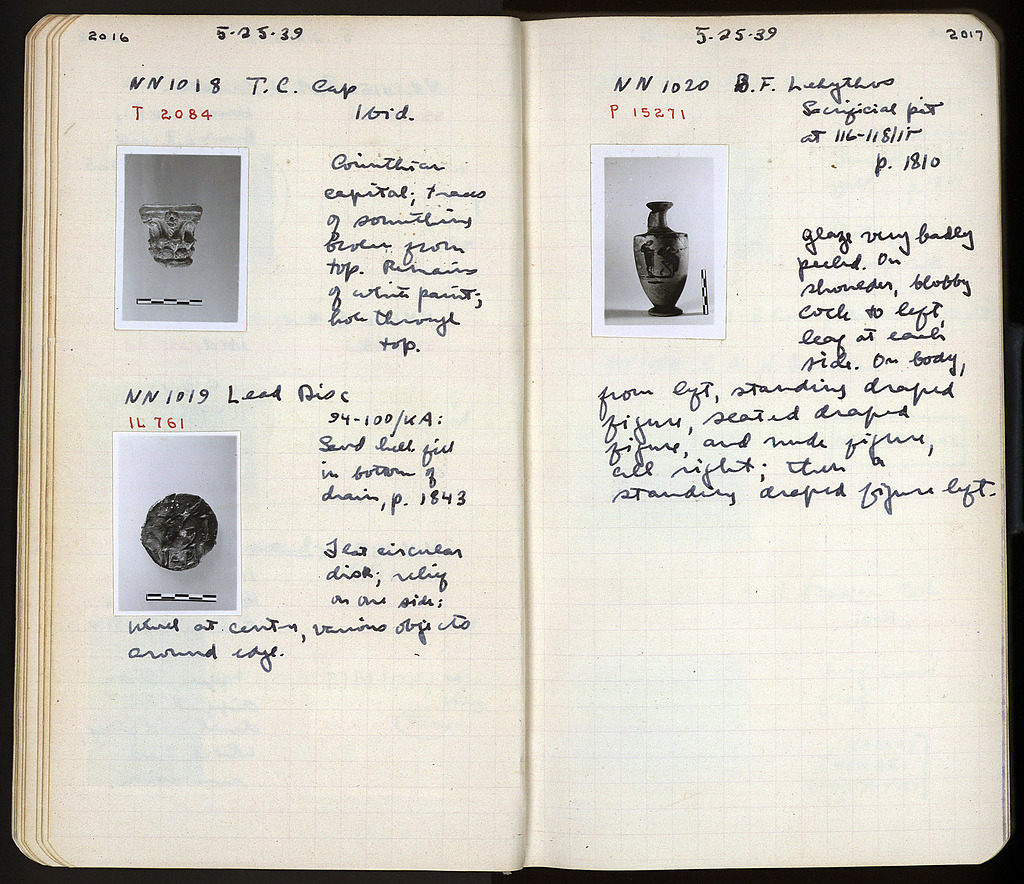 2016
5-25-39
NN1018 T.C. Cap
T 2084
Ibid.
Corinthian
capital; traces
of something
broken from
top. Remains
of white paint;
hole through
top.
NN1019 Lead Disc
IL 761
94-100/KA:
Sand fill
in bottom of
drain, p. 1843
Flat circular
disk; relief
on one side:
Wheel at center, various objects
around edge.
5-25-39
2017
NN 1020 B.F. Lekythos
P 15271
Sacrificial pit
at 116-118/
p. 1810
Glaze very badly
peeled. On
shoulder, blobby
cock to left,
leaf at each
side. On body,
from left, standing draped
figure, seated draped
figure, and nude figure,
all right; then a
standing draped figure left.